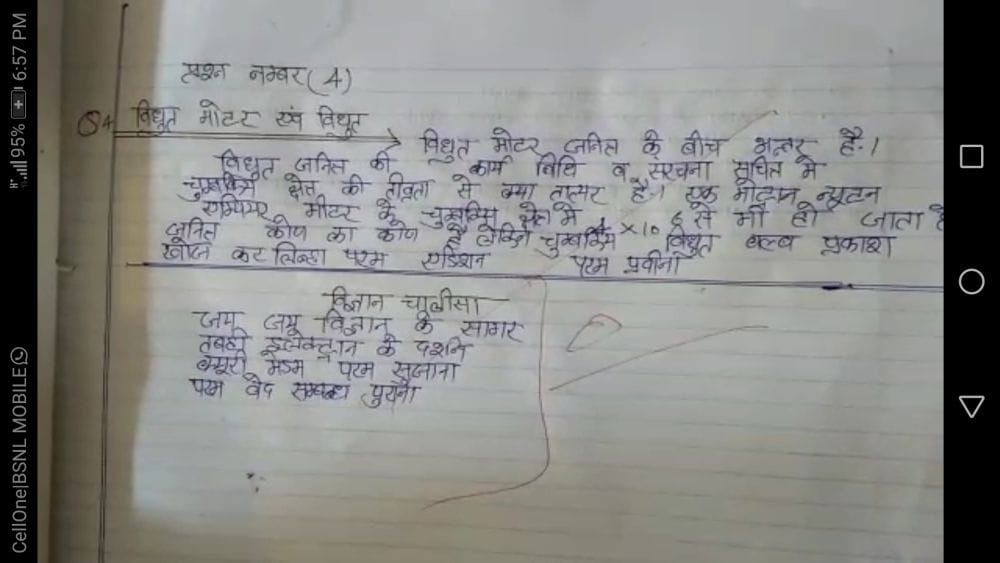 CellOne|BSNL MOBILE
95% 6:57 PM
प्रश्न नम्बर (4)
Q4 विधुत मोटर एवं विधुत
विधुत मोटर जनित्र के बीच अन्तर है।
विधुत जनित्र की कार्य विधि व संरचना सुचित मे
चुम्बकिये क्षेत्र की तीव्रता से क्या तात्पर है। एक न्यूटन
एम्पियर मीटर के चुम्बकिय क्षेत्र मे 6 से भी हो जाता है
जनित्र कोण का कोण है लेकिन चुम्बकिय × 10 विधुत बल्ब प्रकाश
खोज कर लिन्हा परम एडिशन परम प्रवीना
विज्ञान चालीसा
जय जय विज्ञान के सागर
इलेक्ट्रान के दर्शन
मैडम परम सुजाना
परम वेद सम्बन्ध पुराना